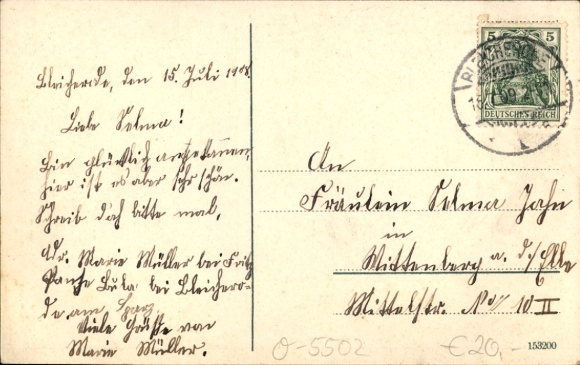 Bleicherode, den 15. Juli 1909.
Liebe Selma!
Bin glücklich angekommen,
hier ist es aber sehr schön.
Schreib doch bitte mal,
Adr. Marie Müller bei Fritz
bei Bleichero-
de am Harz
Viele Grüsse von
Marie Müller.
5 5
DEUTSCHES REICH
BLEICHERODE
An
Fräulein Selma Jahn
in
Wittenberg a. d./Elbe
Mittelstr. No 10 II
153200
O-5502
€20,-